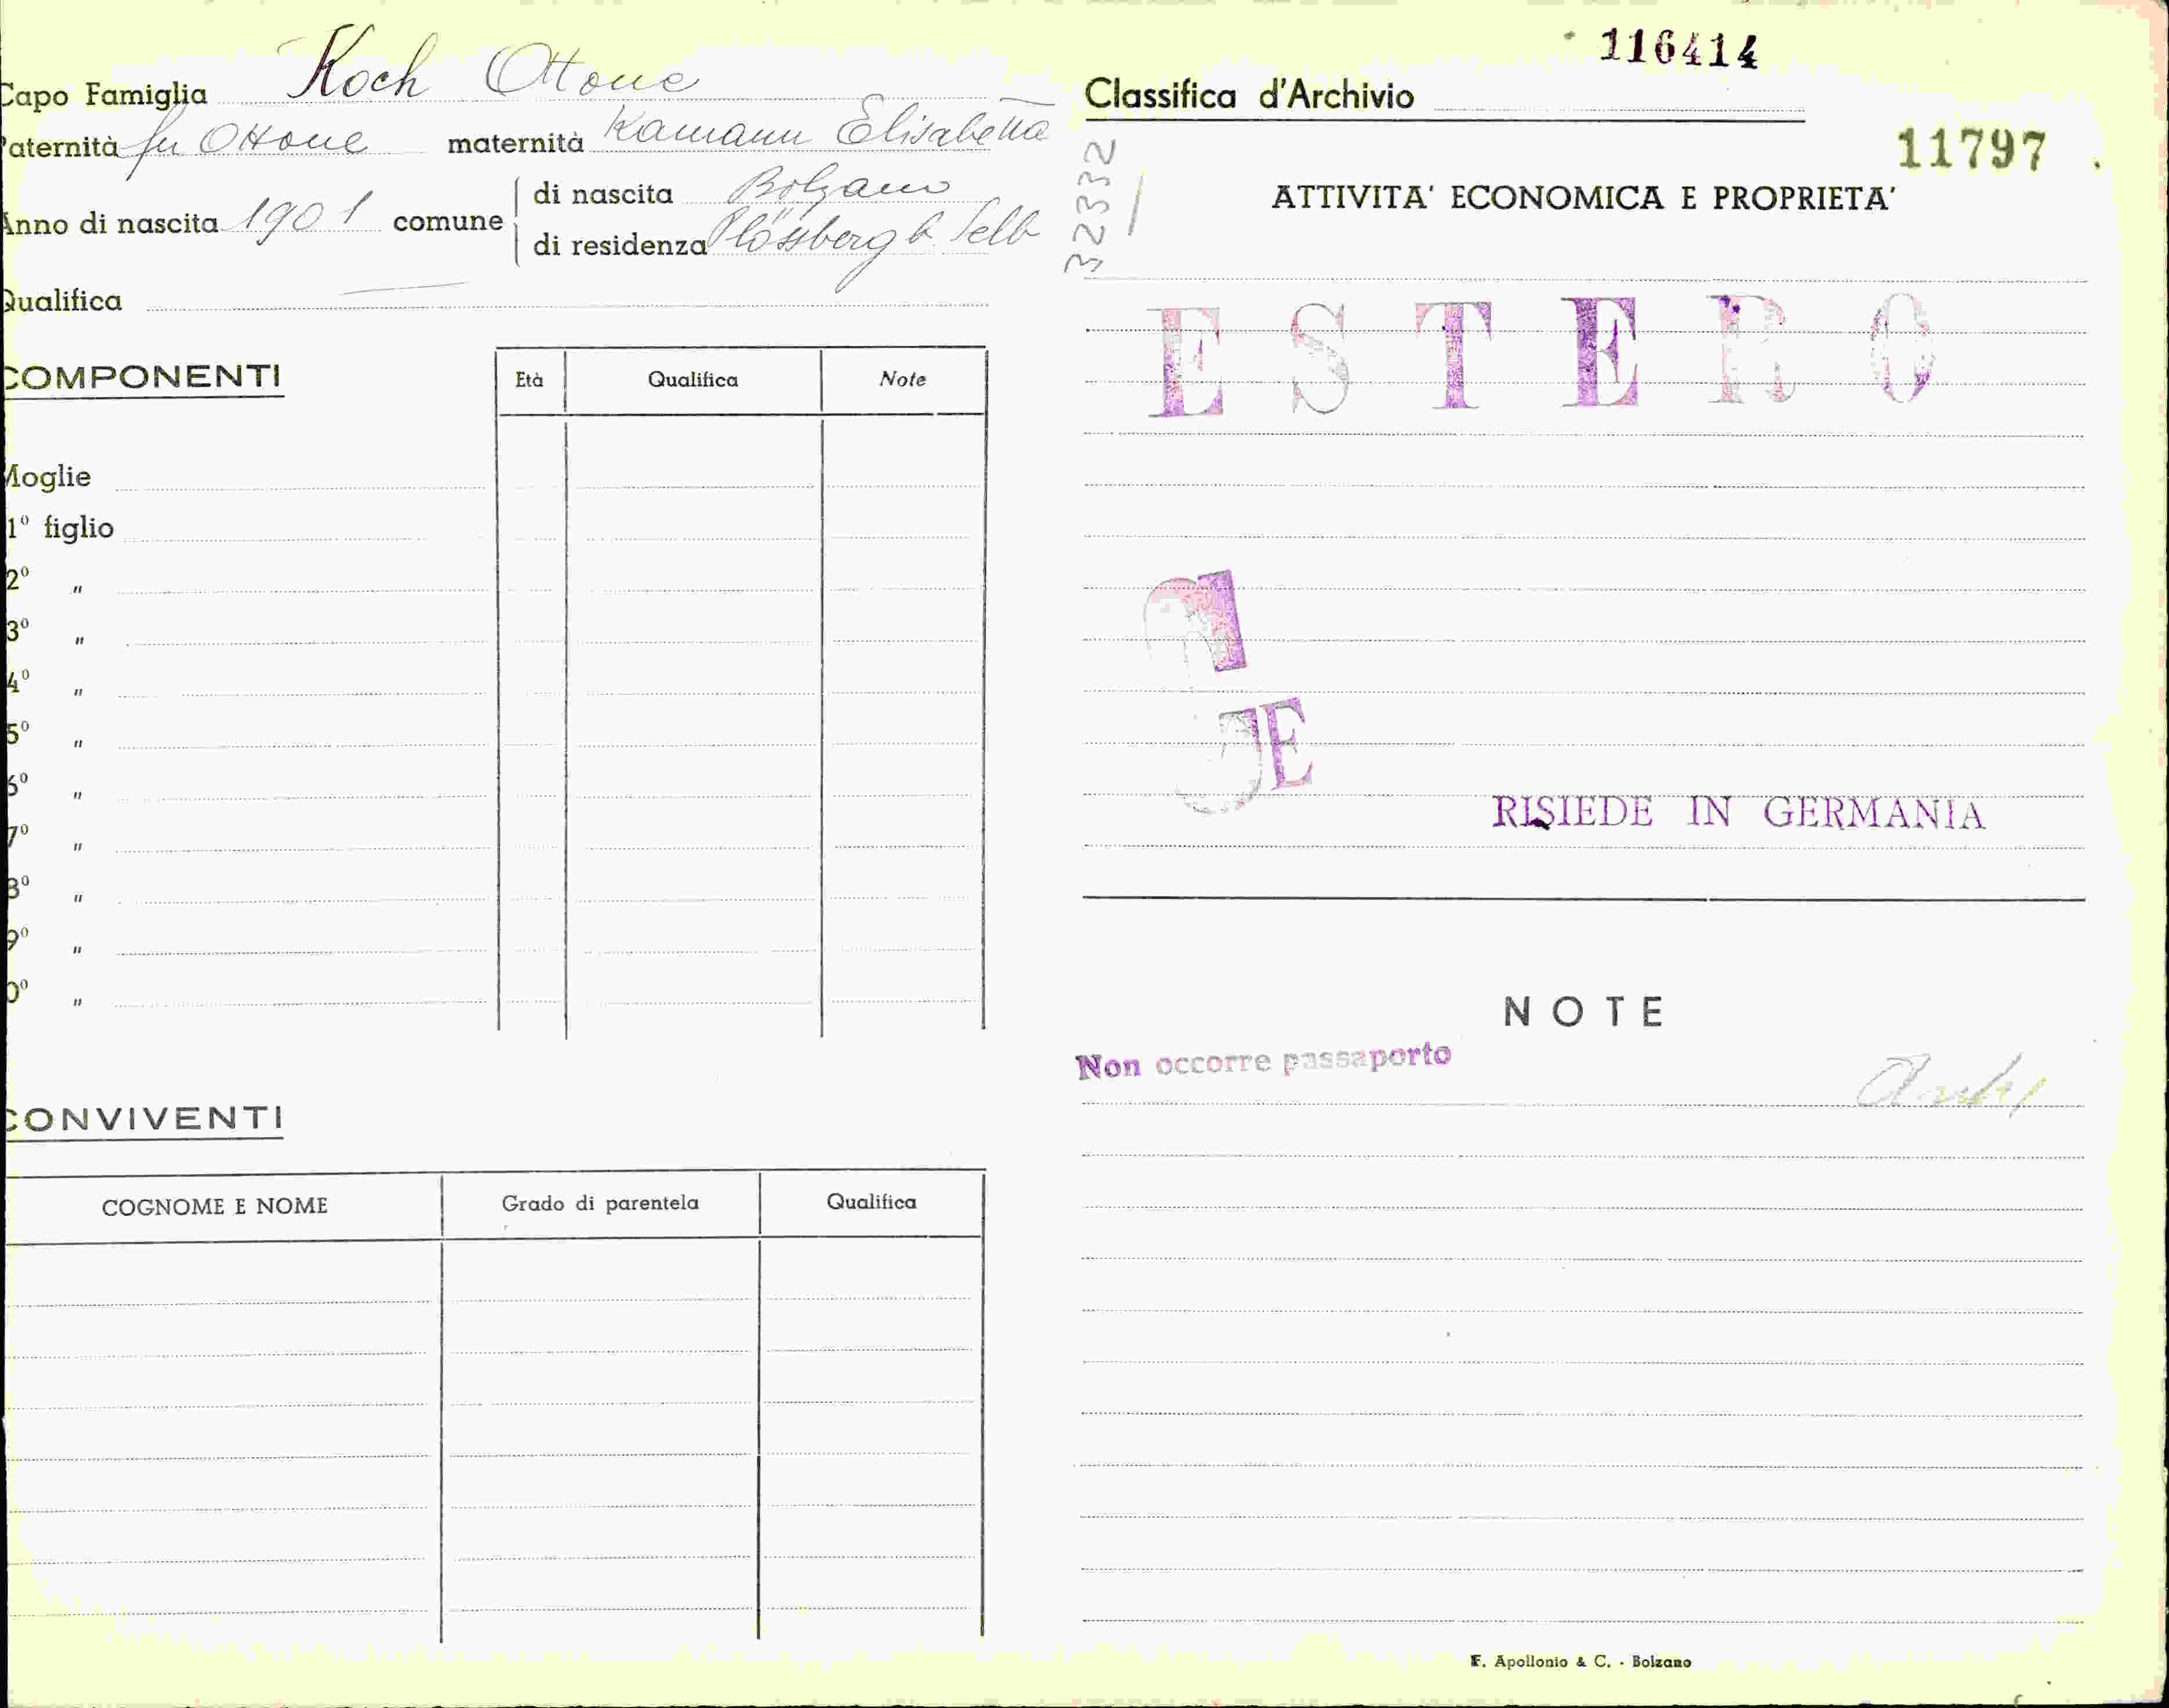 116414
Capo Famiglia Koch Ottone
Paternità fu Ottone maternità Kamann Elisabetta
Anno di nascita 1901 comune di nascita Bolzano
di residenza Plössberg b. Selb
Qualifica
COMPONENTI
Età Qualifica Note
Moglie
1º figlio
2º "
3º "
4º "
5º "
6º "
7º "
8º "
9º "
0º "
CONVIVENTI
COGNOME E NOME Grado di parentela Qualifica
Classifica d'Archivio
11797
32332
ATTIVITA' ECONOMICA E PROPRIETA'
ESTERO
RISIEDE IN GERMANIA
NOTE
Non occorre passaporto
F. Apollonio & C. - Bolzano